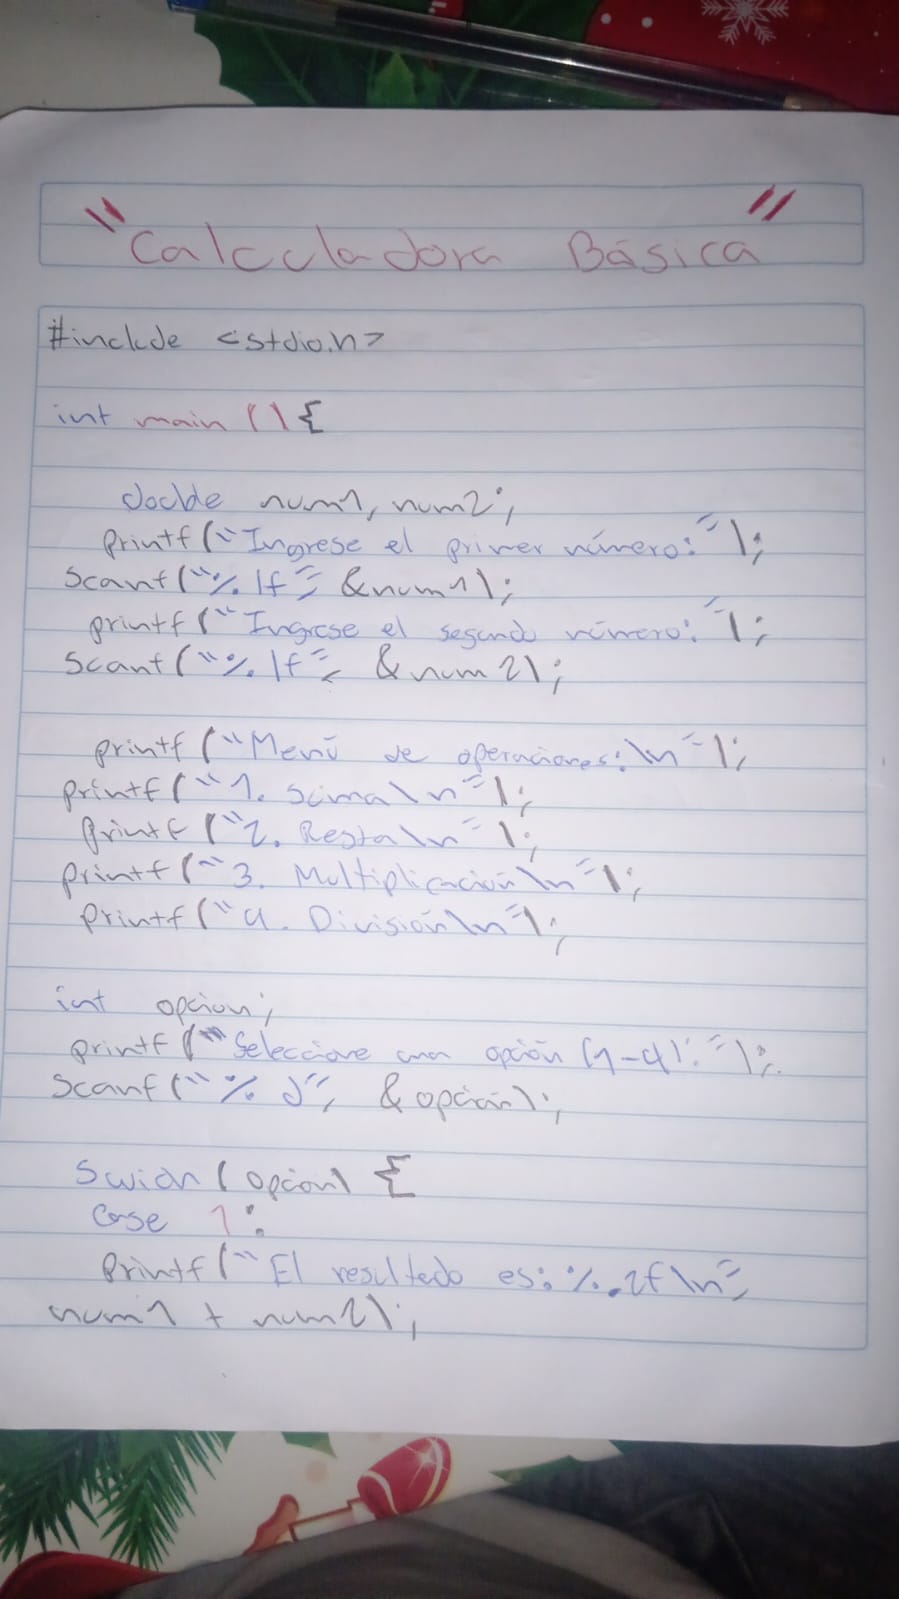 "Calculadora Básica"
#include <stdio.h>
int main () {
double num1, num2;
printf ("Ingrese el primer número: ");
scanf ("%lf", &num1);
printf ("Ingrese el segundo número: ");
scanf ("%lf", &num2);
printf ("Menú de operaciones: \n");
printf ("1. Suma\n");
printf ("2. Resta\n");
printf ("3. Multiplicación\n");
printf ("4. División\n");
int opcion;
printf ("Seleccione una opción (1-4): ");
scanf ("%d", &opción);
Switch (opcion) {
Case 1:
printf ("El resultado es: %.2f\n",
num1 + num2);